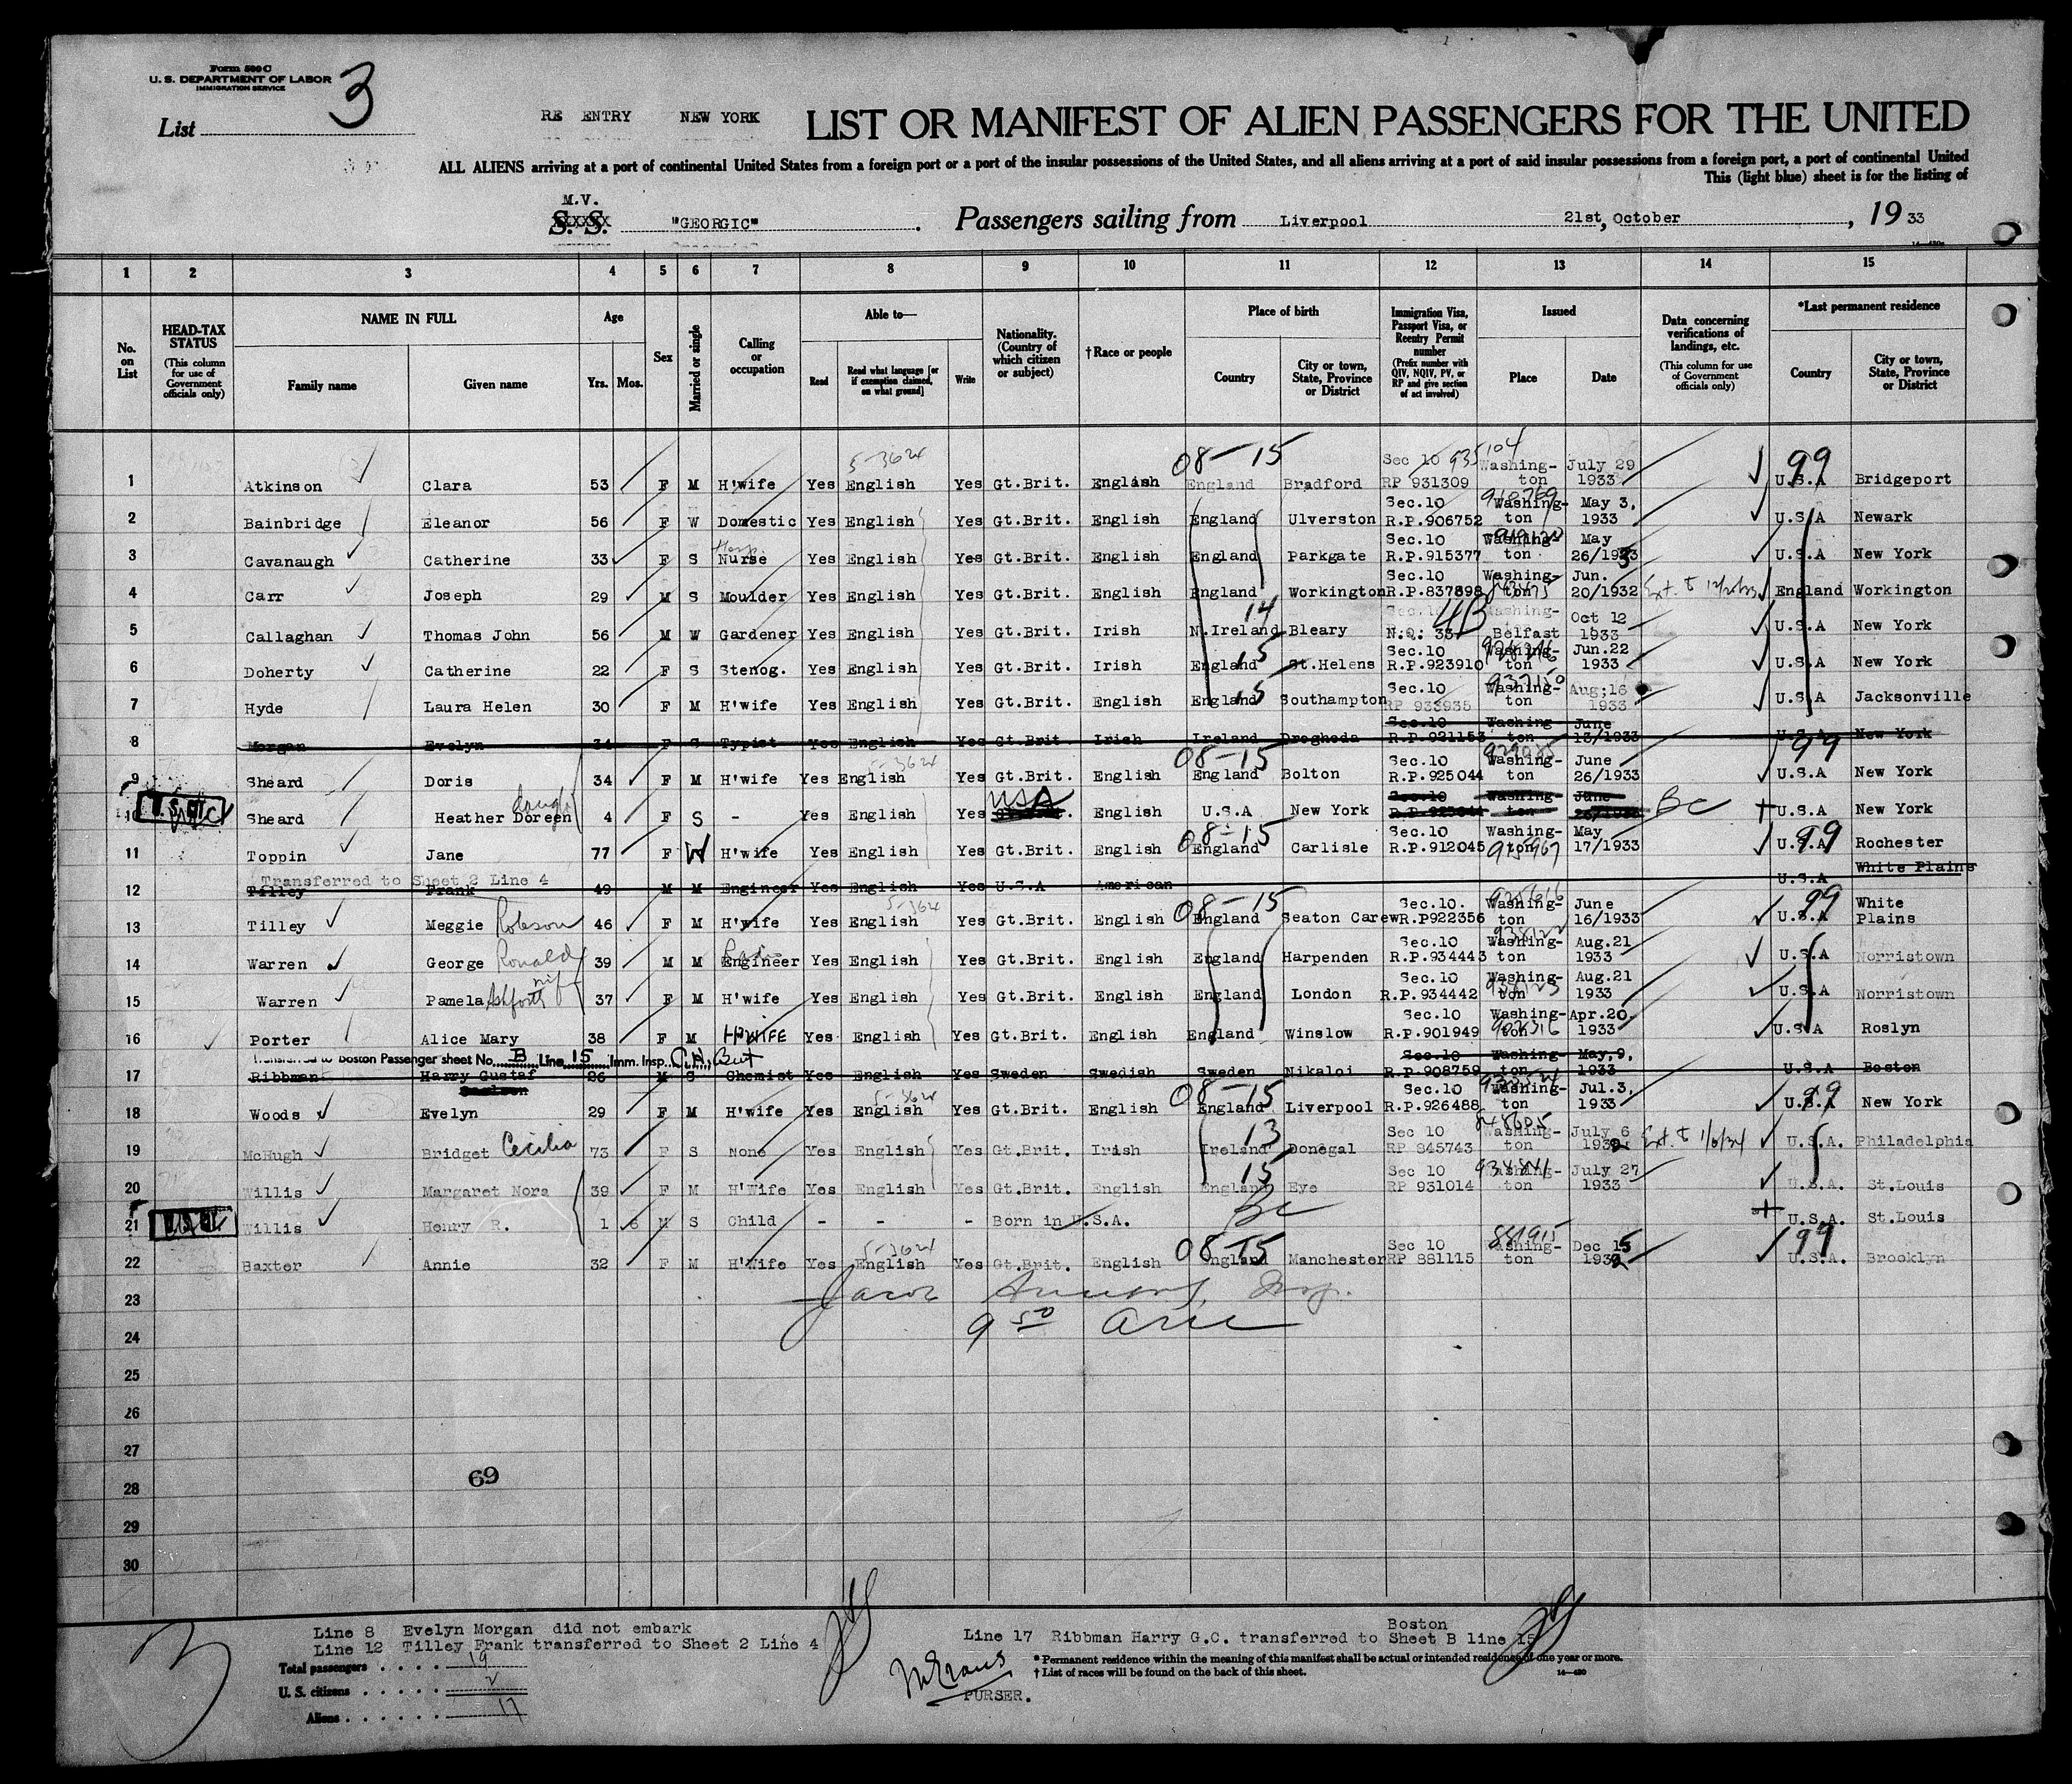 Form 500 C
U. S. DEPARTMENT OF LABOR
IMMIGRATION SERVICE
List 3
RE ENTRY NEW YORK
LIST OR MANIFEST OF ALIEN PASSENGERS FOR THE UNITED
ALL ALIENS arriving at a port of continental United States from a foreign port or a port of the insular possessions of the United States, and all aliens arriving at a port of said insular possessions from a foreign port, a port of continental United
This (light blue) sheet is for the listing of
M.V.
S. S. "GEORGIC". Passengers sailing from Liverpool 21st, October, 19 33
1 2 3 4 5 6 7 8 9 10 11 12 13 14 15
No. on List
HEAD-TAX STATUS (This column for use of Government officials only)
NAME IN FULL Family name Given name
Age Yrs. Mos.
Sex
Married or single
Calling or occupation
Able to— Read Read what language [or if exemption claimed, on what ground] Write
Nationality. (Country of which citizen or subject)
† Race or people
Place of birth Country City or town, State, Province or District
Immigration Visa, Passport Visa, or Reentry Permit number (Prefix number with QIV, NQIV, PV, or RP and give section of act involved)
Issued Place Date
Data concerning verifications of landings, etc. (This column for use of Government officials only)
*Last permanent residence Country City or town, State, Province or District
1 Atkinson Clara 53 F M H'wife Yes English 5-3624 Yes Gt.Brit. English 08-15 England Bradford Sec 10 RP 931309 935104 Washington July 29 1933 99 U.S.A Bridgeport
2 Bainbridge Eleanor 56 F W Domestic Yes English Yes Gt.Brit. English England Ulverston Sec.10 R.P.906752 Washington May 3, 1933 U.S.A Newark
3 Cavanaugh Catherine 33 F S Nurse Yes English Yes Gt.Brit. English England Parkgate Sec.10 R.P.915377 Washington May 26/1933 U.S.A New York
4 Carr Joseph 29 M S Moulder Yes English Yes Gt.Brit. English England Workington R.P.837898 Sec.10 Washington Jun. 20/1932 England Workington
5 Callaghan Thomas John 56 M W Gardener Yes English Yes Gt.Brit. Irish 14 N.Ireland Bleary N.Q. 33 4B Belfast Oct 12 1933 U.S.A New York
6 Doherty Catherine 22 F S Stenog. Yes English Yes Gt.Brit. Irish England 15 St.Helens Sec.10 R.P.923910 Washington Jun.22 1933 U.S.A New York
7 Hyde Laura Helen 30 F M H'wife Yes English Yes Gt.Brit. English England 15 Southampton Sec.10 RP 933935 937150 Washington Aug;16 1933 U.S.A Jacksonville
8 Morgan Evelyn 34 F S Typist Yes English Yes Gt.Brit Irish Ireland Drogheda Sec.10 R.P.921153 Washington June 13/1933 U.S.A New York
9 Sheard Doris 34 F M H'wife Yes English 5-3624 Yes Gt.Brit. English 08-15 England Bolton Sec.10 R.P.925044 Washington June 26/1933 99 U.S.A New York
10 Sheard Heather Doreen daugh 4 F S - Yes English Yes USA English U.S.A New York Sec.10 Washington June BC U.S.A New York
11 Toppin Jane 77 F W H'wife Yes English Yes Gt.Brit. English 08-15 England Carlisle Sec.10 R.P.912045 Washington May 17/1933 99 U.S.A Rochester
Transferred to Sheet 2 Line 4
12 Tilley Frank 49 M M Engineer Yes English Yes U.S.A American U.S.A White Plains
13 Tilley Meggie Robson 46 F M H'wife Yes English 5-3624 Yes Gt.Brit. English 08-15 England Seaton Carew Sec.10. R.P922356 Washington June 16/1933 99 U.S.A White Plains
14 Warren George Ronald 39 M M Engineer Yes English Yes Gt.Brit. English England Harpenden Sec.10 R.P.934443 938122 Washington Aug.21 1933 U.S.A Norristown
15 Warren Pamela Ashforth 37 F M H'wife Yes English Yes Gt.Brit. English England London Sec.10 R.P.934442 938123 Washington Aug.21 1933 U.S.A Norristown
16 Porter Alice Mary 38 F M H'WIFE Yes English Yes Gt.Brit. English England Winslow Sec.10 R.P.901949 Washington Apr.20. 1933 U.S.A Roslyn
Transferred to Boston Passenger sheet No. B Line 15 Imm. Insp.
17 Ribbman Harry Gustaf Carlson 26 M S Chemist Yes English Yes Sweden Swedish Sweden Nikaloi Sec.10 R.P.908759 Washington May,9, 1933 U.S.A Boston
18 Woods Evelyn 29 F M H'wife Yes English 5-3624 Yes Gt.Brit. English 08-15 England Liverpool Sec.10 R.P.926488 Washington Jul.3, 1933 99 U.S.A New York
19 McHugh Bridget Cecilia 73 F S None Yes English Yes Gt.Brit. Irish 13 Ireland Donegal Sec 10 RP 845743 848605 Washington July 6 1932 Ext. to 1/6/34 U.S.A. Philadelphia
20 Willis Margaret Nora 39 F M H'Wife Yes English Yes Gt.Brit. English 15 England Eye Sec 10 RP 931014 934841 Washington July 27 1933 U.S.A. St.Louis
21 Willis Henry R. 1 6 M S Child - - - Born in U.S.A. BC U.S.A. St.Louis
22 Baxter Annie 32 F M H'Wife Yes English 5-3624 Yes Gt.Brit. English 08-15 England Manchester Sec 10 RP 881115 881915 Washington Dec 15 1932 99 U.S.A. Brooklyn
23 Jacob
24 9 50
25
26
27
28 69
29
30
Line 8 Evelyn Morgan did not embark
Line 12 Tilley Frank transferred to Sheet 2 Line 4
Line 17 Ribbman Harry G.C. transferred to Boston Sheet B line 15
Total passengers . . . . 19
U. S. citizens . . . . . 2
Aliens . . . . . . 17
* Permanent residence within the meaning of this manifest shall be actual or intended residence of one year or more.
† List of races will be found on the back of this sheet.
14—430
PURSER.
3